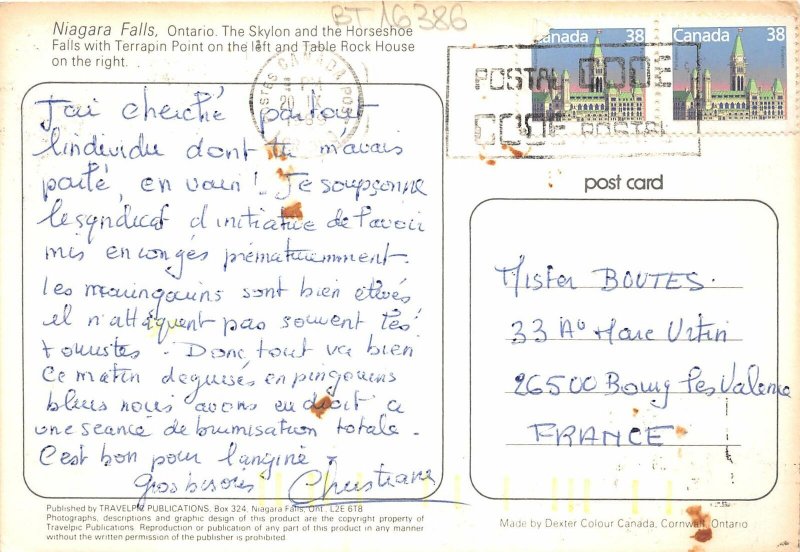 BT16386
Niagara Falls, Ontario. The Skylon and the Horseshoe
Falls with Terrapin Point on the left and Table Rock House
on the right.
Canada 38
Canada 38
POSTES CANADA POST
PM
20 IX
POSTAL CODE
CODE POSTAL
J'ai cherché partout
l'individu dont tu m'avais
parlé, en vain! Je soupçonne
le syndicat d'initiative de l'avoir
mis en congés prématurément.
Les maringouins sont bien élevés
et n'attaquent pas souvent les
touristes. Donc tout va bien
Ce matin déguisés en pingouins
bleus nous avons eu droit à
une séance de brumisation totale.
C'est bon pour l'angine
Gros bisous Christiane
post card
Mister BOUTES.
33 Av Marc Urtin
26500 Bourg les Valence
FRANCE
Published by TRAVELPIC PUBLICATIONS, Box 324, Niagara Falls, Ont. L2E 6T8
Photographs, descriptions and graphic design of this product are the copyright property of
Travelpic Publications. Reproduction or publication of any part of this product in any manner
without the written permission of the publisher is prohibited
Made by Dexter Colour Canada, Cornwall, Ontario